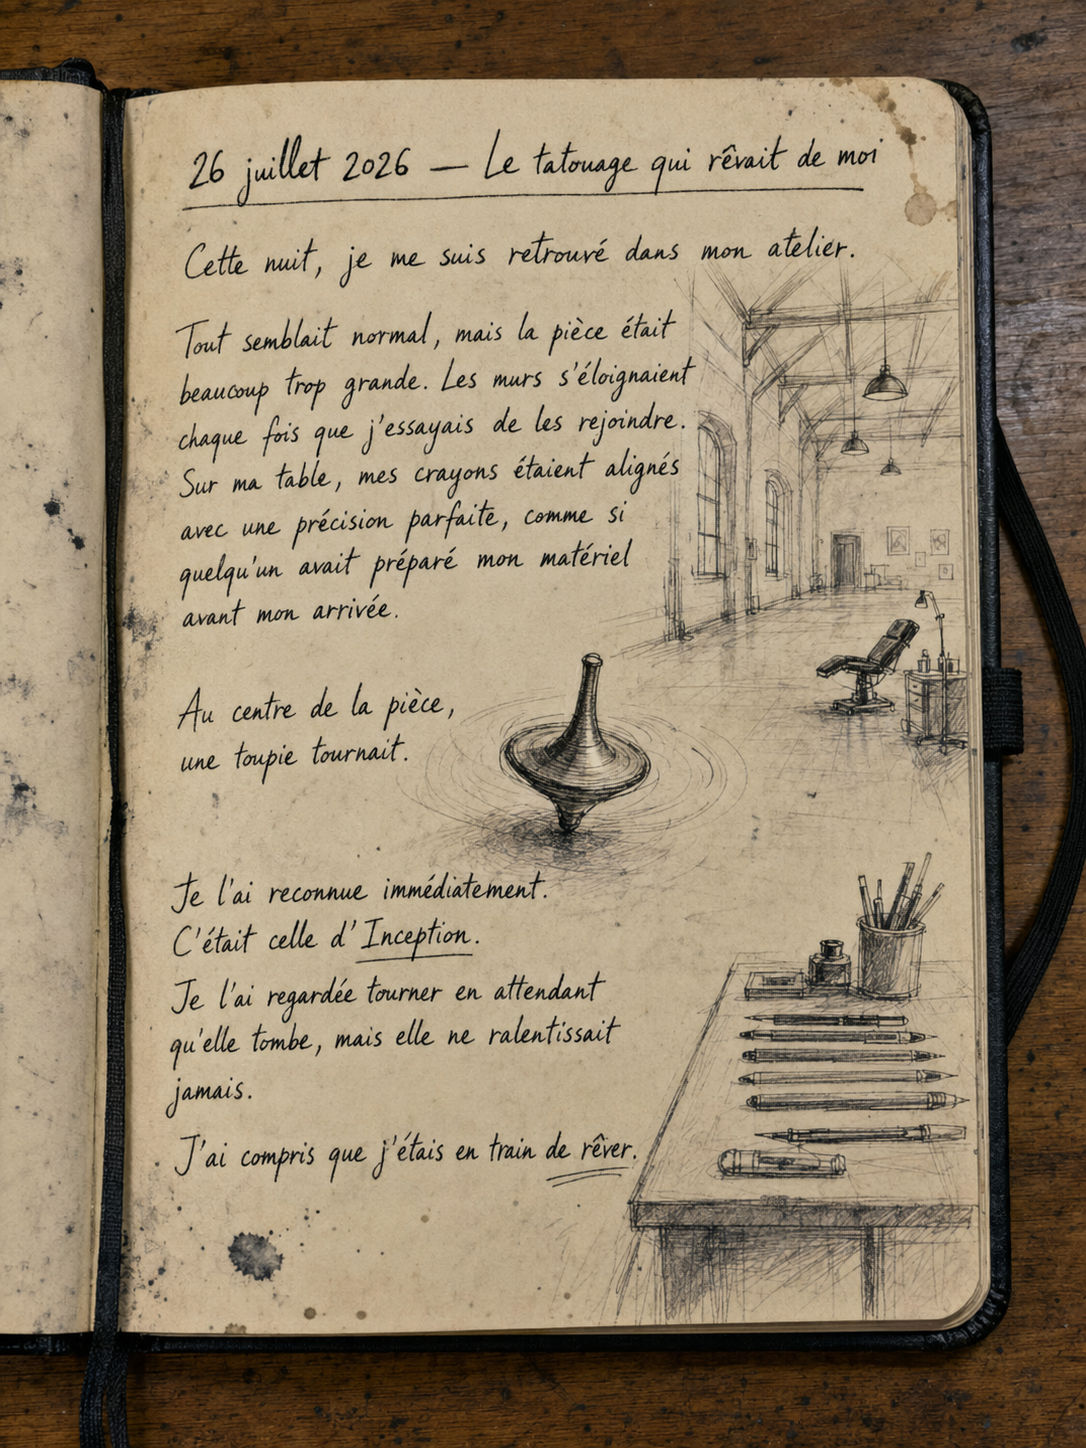 26 juillet 2026 — Le tatouage qui rêvait de moi
Cette nuit, je me suis retrouvé dans mon atelier.
Tout semblait normal, mais la pièce était
beaucoup trop grande. Les murs s'éloignaient
chaque fois que j'essayais de les rejoindre.
Sur ma table, mes crayons étaient alignés
avec une précision parfaite, comme si
quelqu'un avait préparé mon matériel
avant mon arrivée.
Au centre de la pièce,
une toupie tournait.
Je l'ai reconnue immédiatement.
C'était celle d'Inception.
Je l'ai regardée tourner en attendant
qu'elle tombe, mais elle ne ralentissait
jamais.
J'ai compris que j'étais en train de rêver.